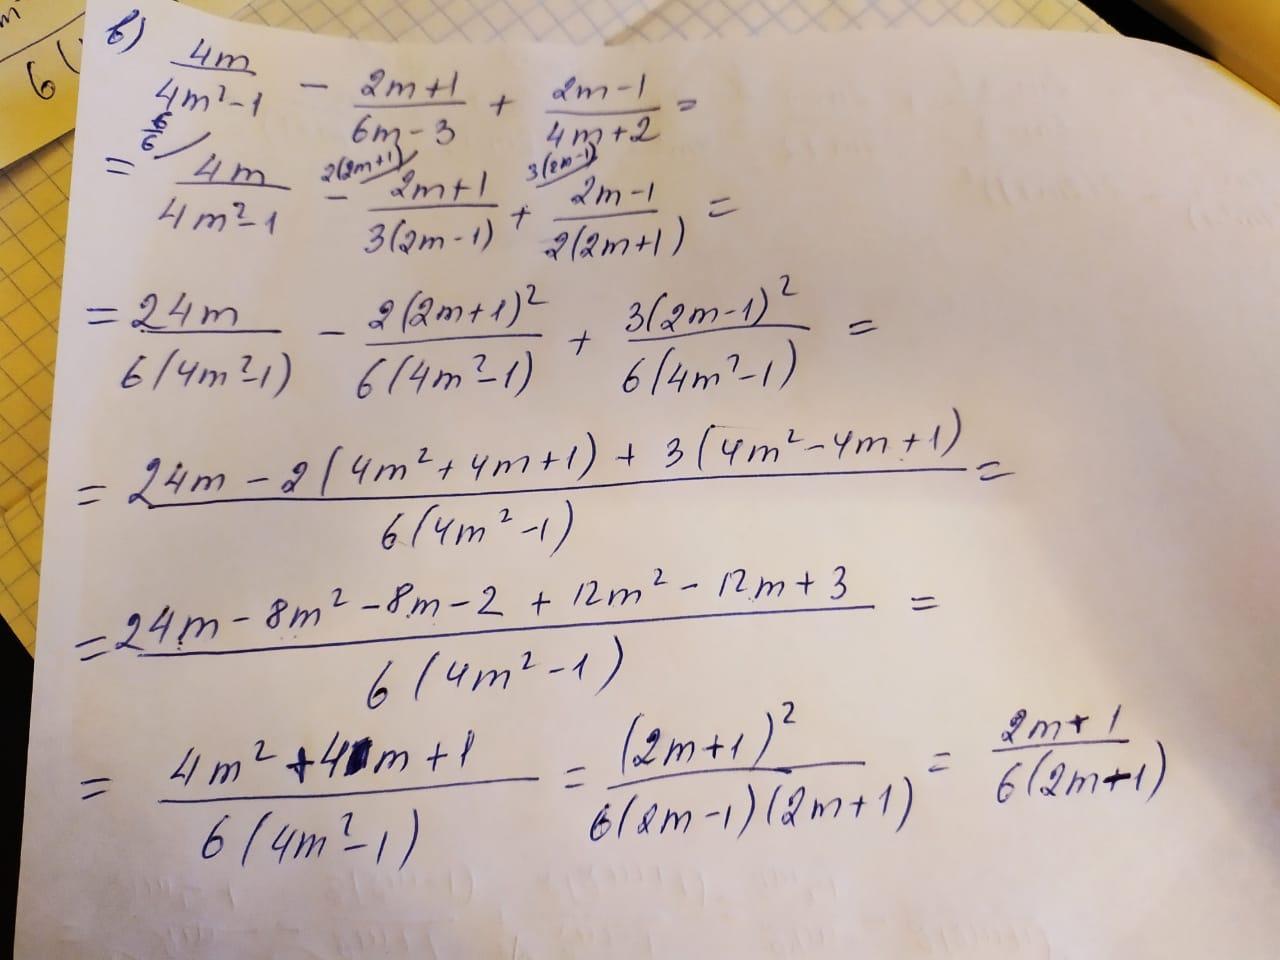 в) 4m/(4m²-1) - (2m+1)/(6m-3) + (2m-1)/(4m+2) =
= 6/ 4m/(4m²-1) - 2(2m+1)/ (2m+1)/(3(2m-1)) + 3(2m-1)/ (2m-1)/(2(2m+1)) =
= 24m/(6(4m²-1)) - 2(2m+1)²/(6(4m²-1)) + 3(2m-1)²/(6(4m²-1)) =
= (24m - 2(4m²+4m+1) + 3(4m²-4m+1))/(6(4m²-1)) =
= (24m - 8m² - 8m - 2 + 12m² - 12m + 3)/(6(4m²-1)) =
= (4m²+4m+1)/(6(4m²-1)) = (2m+1)²/(6(2m-1)(2m+1)) = (2m+1)/(6(2m-1))